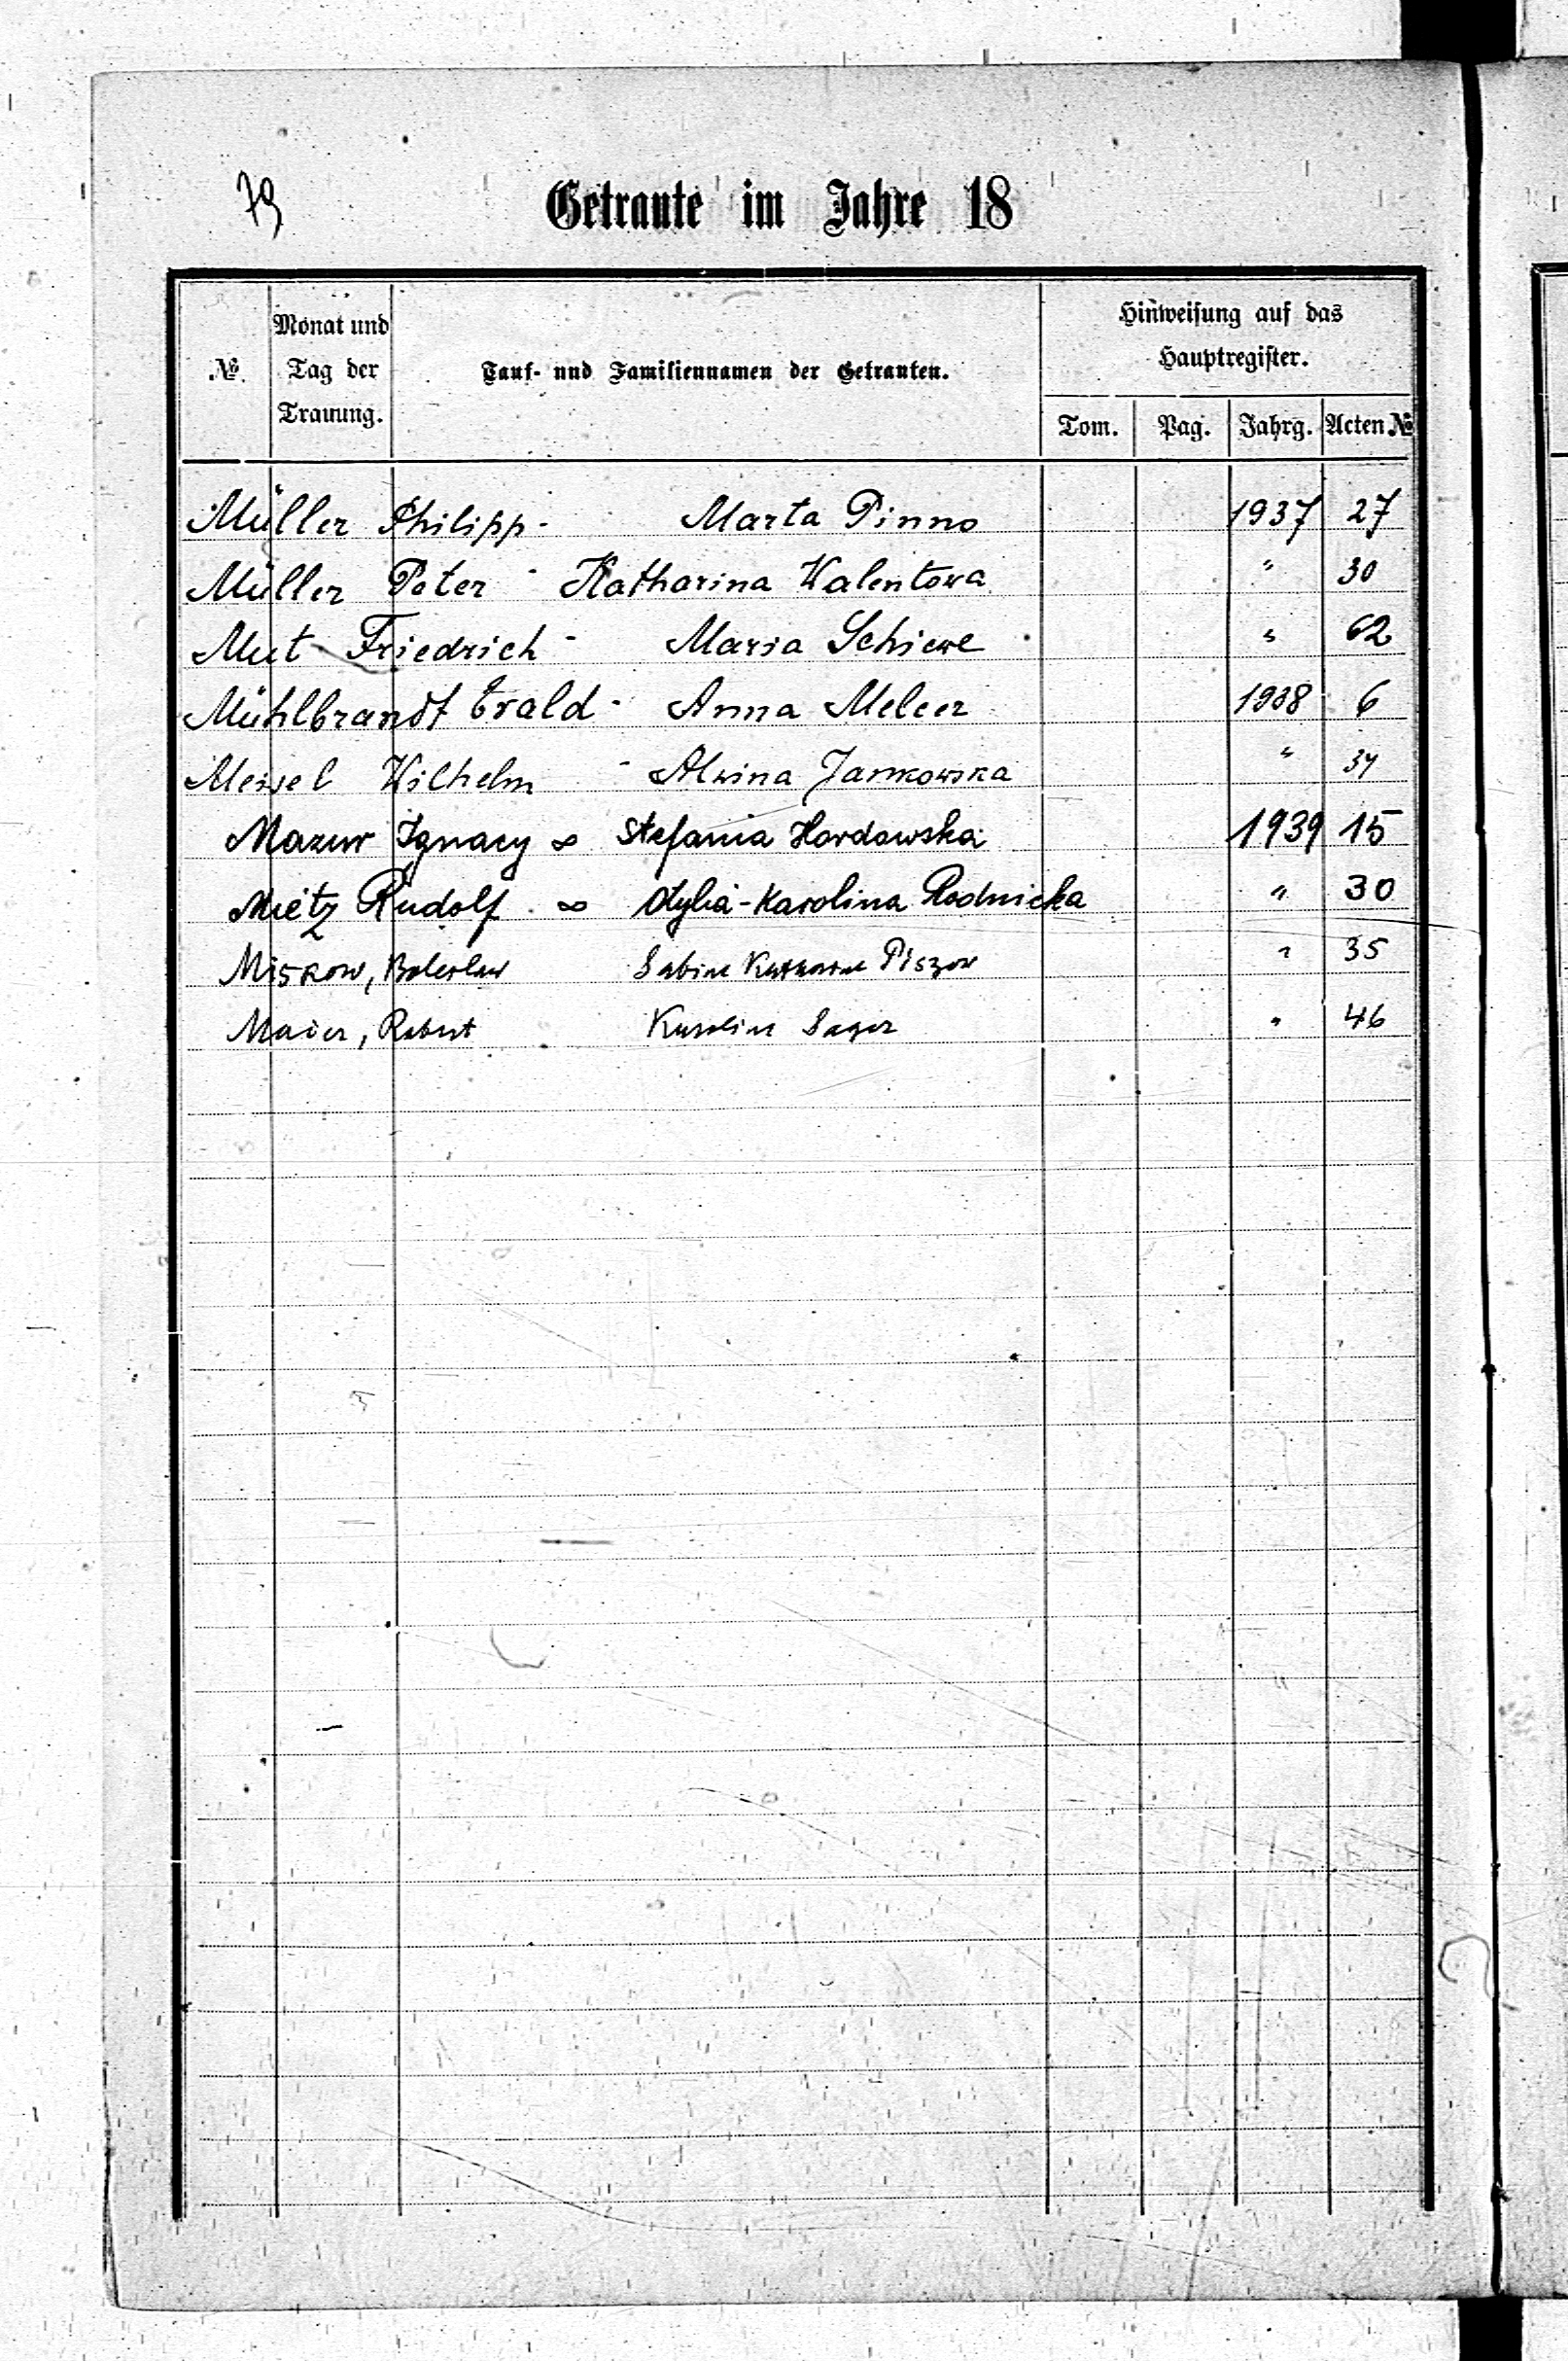 79
Getraute im Jahre 18
№ Monat und Tag der Trauung. Tauf- und Familiennamen der Getrauten. Hinweisung auf das Hauptregister.
Tom. Pag. Jahrg. Acten №
Müller Philipp - Marta Pinno 1937 27
Müller Peter - Katharina Walentowa " 30
Mut Friedrich - Maria Schiewe " 62
Mühlbrandt Ewald - Anna Melcer 1938 6
Wilhelm - Alwina Jankowska " 34
Mazur Ignacy ∞ Stefania Hordowska 1939 15
Mietz Rudolf ∞ Lydia-Karolina Rodnicka " 30
Miskow, Boleslaw Sabine " 35
Maier, Robert Karoline Sager " 46